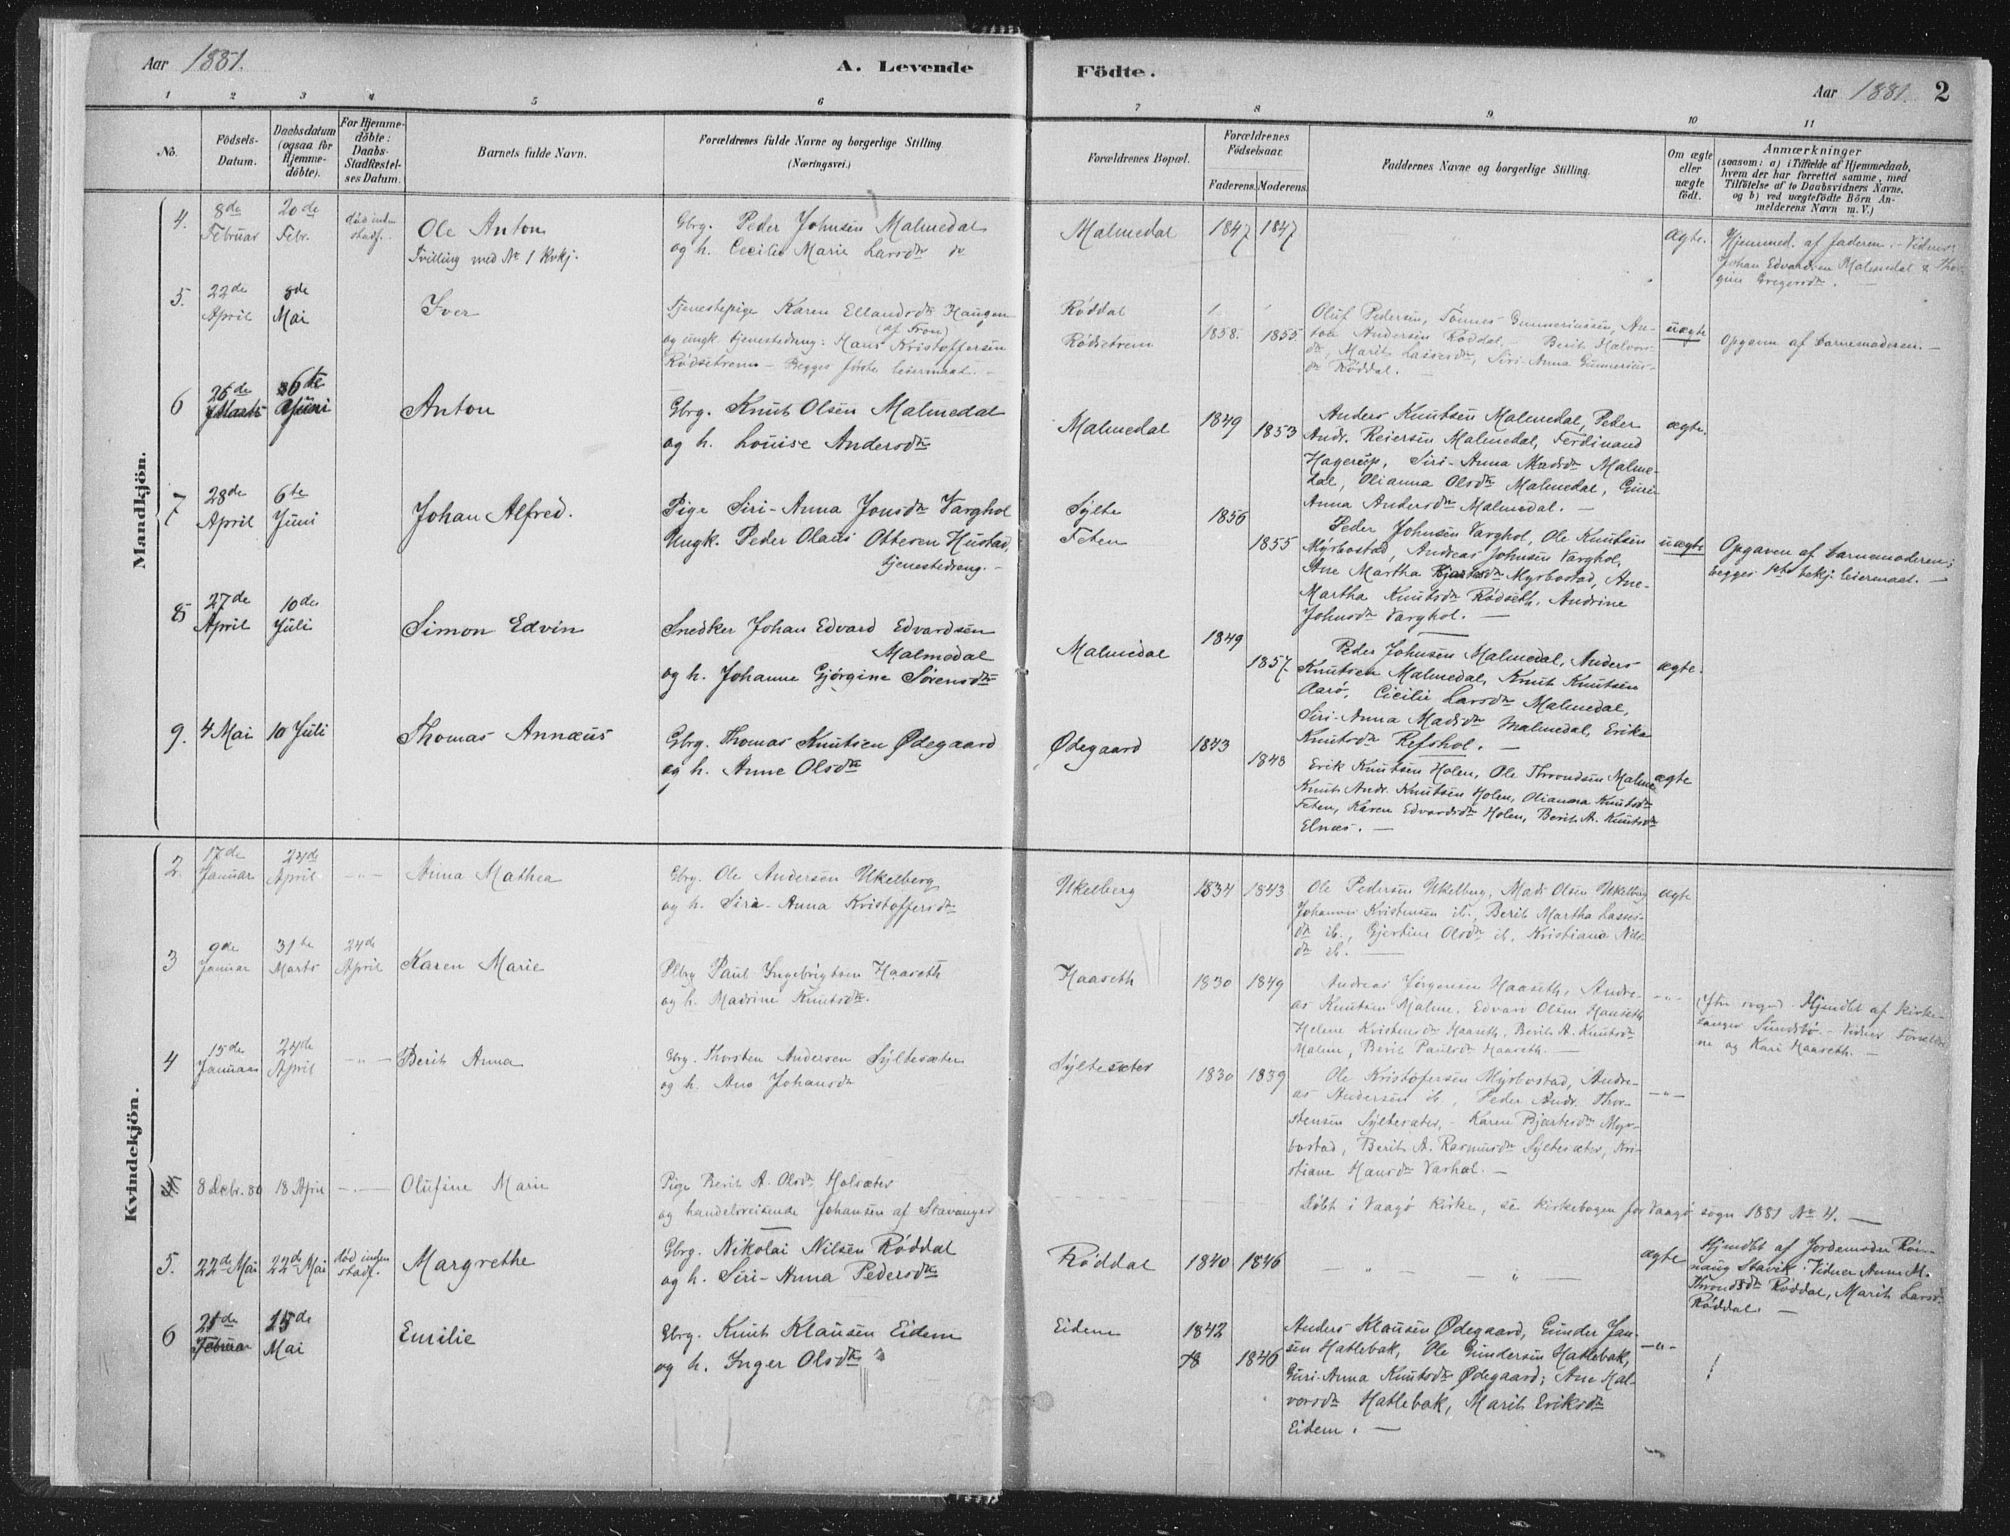 Aar 1881.
A. Levende Födte.
Aar 1881. 2
1 2 3 4 5 6 7 8 9 10 11
No.
Födsels-Datum.
Daabsdatum (ogsaa for Hjemme-döbte).
For Hjemme-döbte: Daabs-Stadfæstel-ses Datum.
Barnets fulde Navn.
Forældrenes fulde Navne og borgerlige Stilling (Næringsvei.)
Forældrenes Bopæl.
Forældrenes Födselsaar.
Faderens. Moderens.
Faddernes Navne og borgerlige Stilling.
Om ægte eller uægte födt.
Anmærkninger
(saasom: a) i Tilfælde af Hjemmedaab, hvem der har forrettet samme, med Tilföielse af to Daabsvidners Navne, og b) ved uægtefödte Börn An-melderens Navn m. V.)
Mandkjön.
4. 8de Februar 20de Febr. død inden stadf.
Ole Anton
Tvilling med No 1 Kvkj.
Gbrg. Peder Johnsen Malmedal
og h. Cecilie Marie Larsdtr
Malmedal 1847 1847
Ægte.
Hjemmed. af faderen. - Vidner:
Johan Edvardsen Malmedal &
Gregersdtr. -
5. 22de April 8de Mai
Iver
Tjenestepige Karen Ellandsdtr Haugen
(af Fron)
og ungk. tjenestedreng: Hans Kristoffersen
Rødsetrem - Begges første leiermaal. -
Røddal
Rødsetrem 1858. 1855.
Oluf Pedersen, Tønnes Gunneriussen, An-
ton Andersen Røddal, - Berit Halvors-
dtr, Marit Lassesdtr, Siri-Anna Gunnerius-
dtr Røddal. -
uægte
Opgaven af barnemoderen. -
6 26de Marts 6te Juni
Anton
Gbrg. Knut Olsen Malmedal
og h. Louise Andersdtr
Malmedal 1849 1853
Anders Knutsen Malmedal, Peder
Andr. Reiersen Malmedal, Ferdinand
Hagerup, Siri-Anna Madsdtr Malme-
dal, Olianna Olsdtr Malmedal, Guri-
Anna Andersdtr Malmedal. -
ægte.
7 28de April 6te Juni
Johan Alfred.
Pige Siri-Anna Jonsdtr Varghol
Ungk. Peder Olaus Ottesen Hustad,
tjenestedreng. -
Sylte
Feten
1856 1855
Peder Johnsen Varghol, Ole Knutsen
Myrbostad, Andreas Johnsen Varghol,
Ane Martha Bjartesdtr Myrbostad, Ane-
Martha Knutsdtr Rødseth, Andrine
Johnsdtr Varghol. -
uægte
Opgaven af barnemoderen;
begges 1ste bekj. leiermaal. -
8 27de April 10de Juli
Simon Edvin
Snedker Johan Edvard Edvardsen
Malmedal
og h. Johanne Gjørgine Sørensdtr
Malmedal 1849 1857.
Peder Johnsen Malmedal, Anders
Knutsen Malmedal, Knut Knutsen
Aarø, Cicilie Larsdtr Malmedal,
Siri-Anna Madsdtr Malmedal, Erika
Knutsdtr Refshol. -
ægte.
9. 4 Mai 10 Juli
Thomas Annæus
Gbrg. Thomas Knutsen Ødegaard
og h. Anne Olsdtr
Ødegaard 1843 1843
Erik Knutsen Holen, Ole Throndsen Malme
Knut Andr. Knutsen Holen, Olianna Knutsdtr
Feten, Karen Edvardsdtr Holen, Berit A. Knutsdtr
Elnæs. -
ægte
Kvindekjön.
2. 17de Januar 24de April -"-
Anna Mathea
Gbrg. Ole Andersen Ukelberg
og h. Siri-Anna Kristoffersdtr
Ukelberg 1834 1843
Ole Pedersen Ukelberg, Mads Olsen Ukelberg
Johannes Kristensen ib., Berit Martha Lasses-
dtr ib., Gjertine Olsdtr ib. Kristiana Nils-
dtr ib. -
ægte
3 9de Januar 31te Marts 24de April
Karen Marie
Plbrg Paul Ingebrigtsen Haaseth
og h. Madrine Knutsdtr.
Haaseth 1830 1849
Andreas Jørgensen Haaseth, Andre-
as Knutsen Malme, Edvard Olsen Haaseth
Helene Kristensdtr Haaseth, Berit A. Knutsdtr
Malme, Berit Paulsdtr Haaseth. -
-"-
Hjmdbt af kirke-
sanger Sundsbø. - Vidner Forældre-
ne og Kari Haaseth. -
4 15de Januar 24de April -"-
Berit Anna
Gbrg. Thorsten Andersen Syltesæter
og h. Ane Johansdtr
Syltesæter 1830 1839
Ole Kristofersen Myrbostad, Andre-
as Andersen ib., Peder Andr. Thor-
stensen Syltesæter, - Karen Bjartesdtr Myr-
bostad, Berit A. Rasmusdtr Syltesæter, Kri-
stiane Hansdtr Varhol. -
-"-
8 Decbr. 80 18 April -"-
Olufine Marie
Pige Berit A. Olsdtr Holsæter
og handelsreisende Johansen af Stavanger
Døbt i Vaagø kirke, se kirkebogen for Vaagø sogn 1881 No 4. -
5. 22de Mai 22de Mai død inden stadf.
Margrethe
Gbrg. Nikolai Nilsen Røddal
og h. Siri-Anna Pedersdtr
Røddal 1840 1846
- " - - " -
ægte
Hjmdbt af Jordemoder Røn-
naug Stavik. Vidner Anne M.
Throndsdtr Røddal, Marit Larsdtr
Røddal. -
6 21de Februar 15de Mai
Emilie
Gbrg. Knut Klausen Eidem
og h. Inger Olsdtr
Eidem 1842
18 1846
Anders Klausen Ødegaard, Gunder Jan-
sen Hatlebak, Ole Gundersen Hatlebak,
Guri-Anna Knutsdtr Ødegaard; Ane Hal-
vorsdtr Hatlebak, Marit Eriksdtr
Eidem. -
-"-